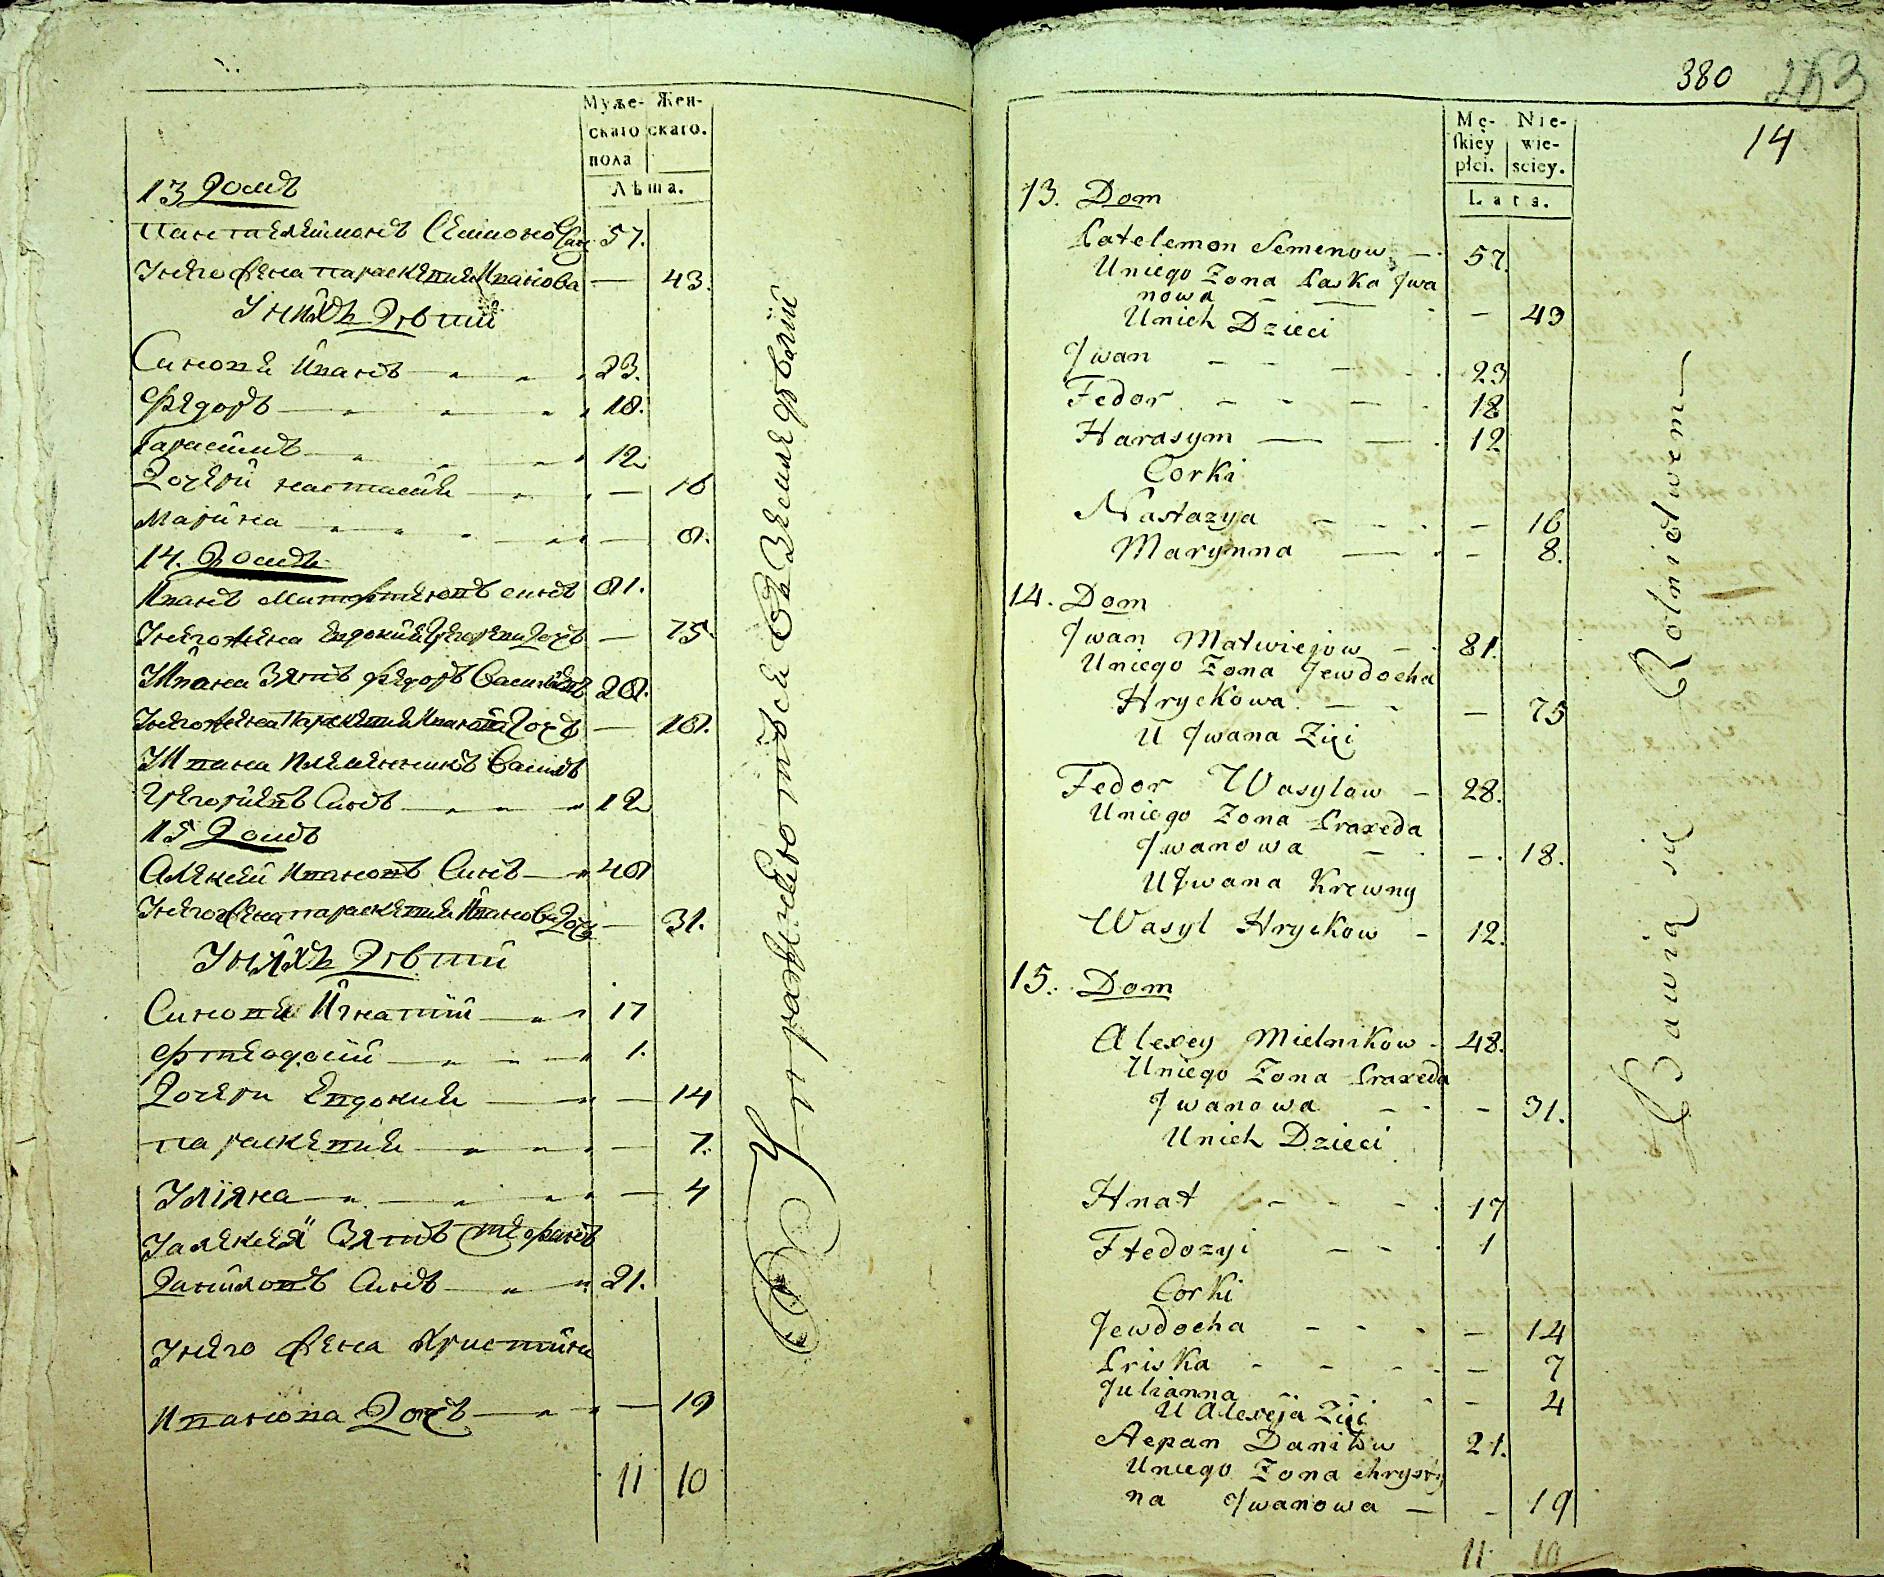 Муже- Жен-
скаго скаго.
пола
Лѣта.
13 Домъ
Пантелеймонъ Семионовъ Сынъ 57.
У него жена Параскевия Иванова — 43.
У нихъ Дѣти
Синовя Иванъ 23.
Федоръ 18.
Гарасимъ 12
Дочери Настасия — 16
Марина — 8.
14. Домъ
Иванъ Матфиевъ синъ 81.
У него жена Евдокия Григорева Дочь — 75
У Ивана Зять Федоръ Василевъ 28.
У него жена Параскевия Иванова Дочь — 18.
У Ивана племенникъ Василь
Григориевъ Синъ 12
15 Домъ
Алексей Ивановъ Синъ 48
У него жена Параскевия Иванова Дочь — 31.
У нихъ Дѣти
Синовя Игнатий 17
Фтеодосий 1.
Дочери Евдокия — 14
Параскевия — 7.
Улияна — 4
У Алексея Зять Стефанъ
Даниловъ Синъ 21.
У него жена Христина
Иванова Дочь — 19
11 10
Упражняются въ Земледѣлии
380 263
14
Mę- Nie-
skiey wie-
płci. sciey.
Lata.
13. Dom
Patelemon Semenow — 57.
Uniego Zona Paska Jwa
nowa — 43
Unich Dzieci
Jwan 23
Fedor 18
Harasym 12
Corki
Nastazya — 16
Marynna — 8.
14. Dom
Jwan Matwiejow 81.
Uniego Zona Jewdocha
Hryckowa — 75
U Jwana Zięć
Fedor Wasylow 28.
Uniego Zona Praxeda
Jwanowa — 18.
U Jwana Krewny
Wasyl Hryckow 12.
15. Dom
Alexey Mielnikow 48.
Uniego Zona Praxeda
Jwanowa — 31.
Unich Dzieci
Hnat 17
Ftedozyi 1
Corki
Jewdocha — 14
Priska — 7
Julianna — 4
U Alexeja Zięć
Stepan Daniłow 21.
Uniego Zona Chrysty
na Jwanowa — 19
11 10
Bawią się Rolnictwem